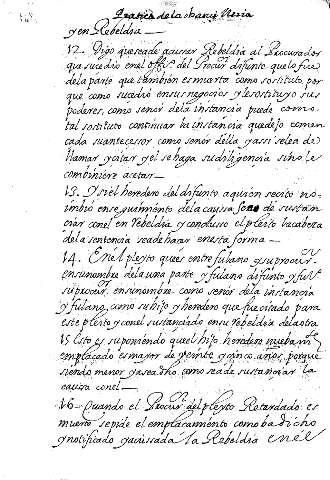 Pratica de la chanci lleria
y en Rebeldia
12. Digo que se a de acusar Rebeldia al Procurador
que sucedio en el offi.º del Procur.ᵒʳ difunto que lo fue
de la parte que tambien es muerta como sostituto, por
que como sucedio en sus negocios y le sostituyo sus
poderes, como señor de la instancia puede como
tal sostituto continuar la instancia que dejo comen
cada su antecessor como señor della, y assi se le a de
llamar y citar y el se haga su diligencia si no le
combiniere acetar
13. Y si el heredero del difunto, a quien se cito no
salio en seguimiento de la caussa se a de sustan
ciar con el en rebeldia y concluso el pleito la cabeza
de la sentencia se a de hazer en esta forma
14. En el pleyto que es entre fulano y su procur.ᵒʳ
en su nombre de la una parte y fulano difunto y ful.º
su procur.ᵒʳ en su nombre como señor de la instancia
y fulano, como su hijo y heredero que fue citado para
este pleito y con el sustanciado en su rebeldia de la otra
15 Esto es suponiendo que el hijo heredero nuebam.ᵗᵉ
emplaçado es mayor de veinte y cinco años, porque
siendo menor ya se a dho como se a de sustanciar la
caussa con el
16. Quando el Procur.ᵒʳ del pleyto Retardado es
muerto se pide el emplacamiento como ba dicho
y notificado y acussada la Rebeldia en el